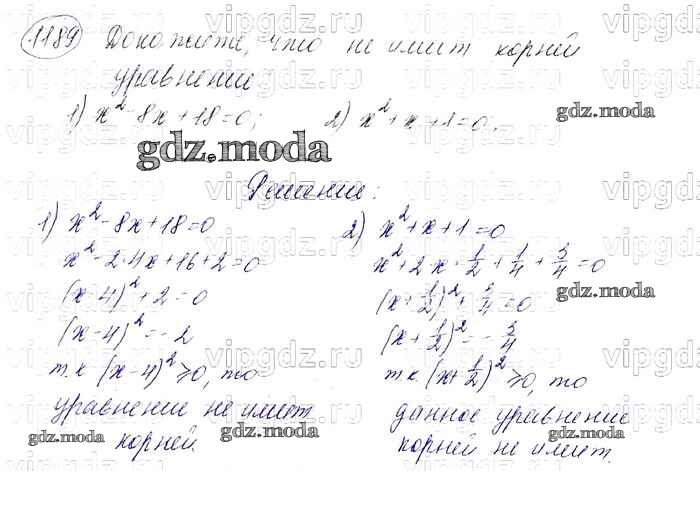 1189 Докажите, что не имеет корней
уравнение
1) x² - 8x + 18 = 0; 2) x² + x + 1 = 0.
gdz.moda
gdz.moda
Решение:
1) x² - 8x + 18 = 0
x² - 2·4x + 16 + 2 = 0
(x - 4)² + 2 = 0
(x - 4)² = -2
т.к (x - 4)² ⩾ 0, то
уравнение не имеет
корней.
gdz.moda
gdz.moda
2) x² + x + 1 = 0
x² + 2·x·1/2 + 1/4 + 3/4 = 0
gdz.moda
(x + 1/2)² + 3/4 = 0
(x + 1/2)² = - 3/4
т.к (x + 1/2)² ⩾ 0, то
данное уравнение
корней не имеет.
gdz.moda
vipgdz.ru vipgdz.ru vipgdz.ru vipgdz.ru